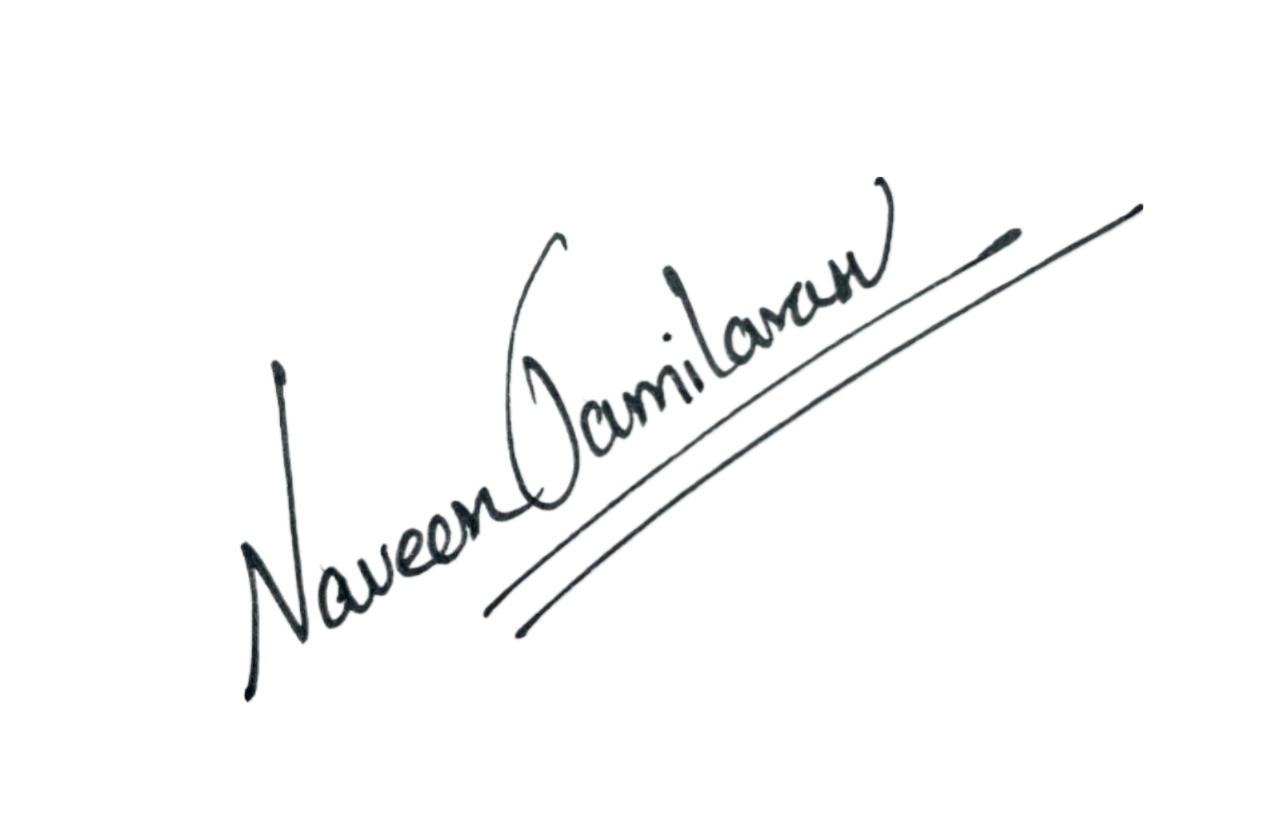 Naveen Tamilaran